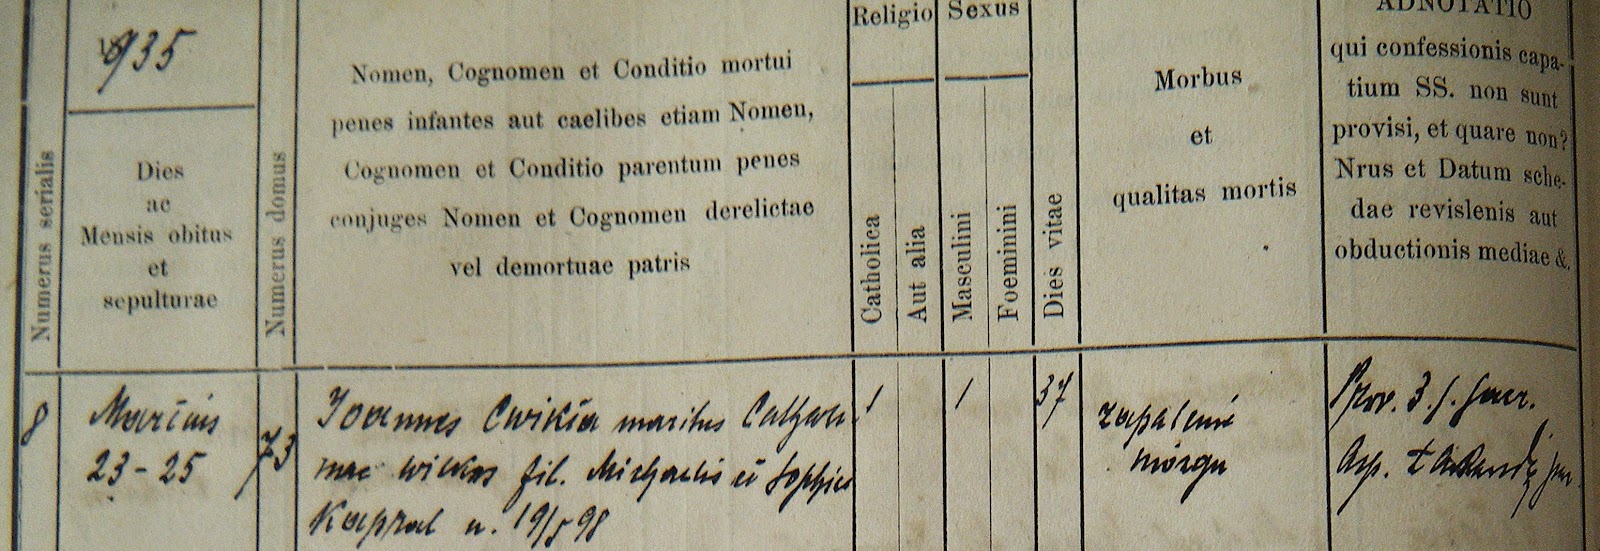 1935
Numerus serialis
Dies
ac
Mensis obitus
et
sepulturae
Numerus domus
Nomen, Cognomen et Conditio mortui
penes infantes aut caelibes etiam Nomen,
Cognomen et Conditio parentum penes
conjuges Nomen et Cognomen derelictae
vel demortuae patris
Religio
Catholica
Aut alia
Sexus
Masculini
Foeminini
Dies vitae
Morbus
et
qualitas mortis
ADNOTATIO
qui confessionis capa-
tium SS. non sunt
provisi, et quare non?
Nrus et Datum sche-
dae revislenis aut
obductionis mediae &.
8
Marcius
23-25
73
Joannes Cwikla maritus Cathari-
nae Wilkos fil. Michaelis et Sophiae
Kapral n. 19/5 98
1
1
37
zapalenie
mózgu
Prov. 3. s. sacr.